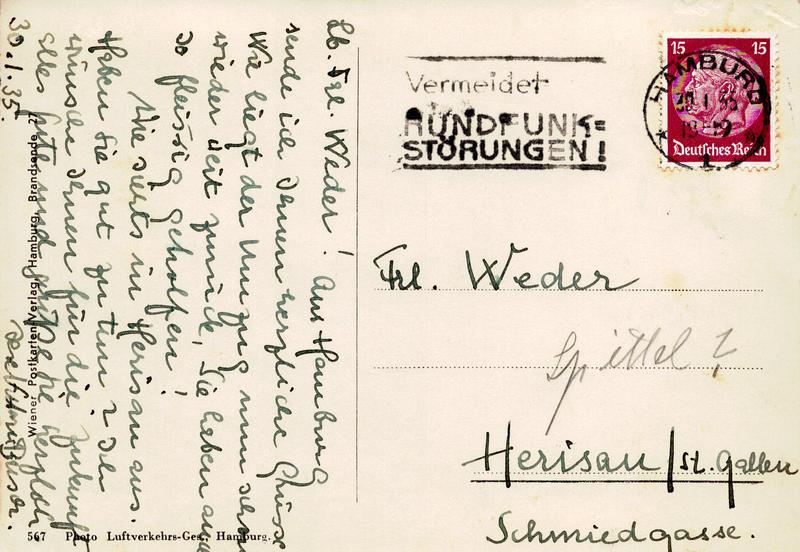 Lb. Frl. Weder! Aus Hamburg
sende ich Ihnen herzliche Grüsse
Wie liegt der Umzug nun schon
wieder weit zurück, Sie haben auch
so fleissig geholfen!
Wie siehts in Herisau aus.
Haben Sie gut zu tun? Ich
wünsche Ihnen für die Zukunft
alles Gute und grüsse Sie herzlich
30.1.35.
Wiener Postkarten-Verlag, Hamburg, Brandsende 27
567 Photo Luftverkehrs-Ges., Hamburg.
Vermeidet
RUNDFUNK=
STÖRUNGEN!
15 15
Deutsches Reich
HAMBURG
1
Frl. Weder
Spittel?
Herisau / St. Gallen
Schmiedgasse.